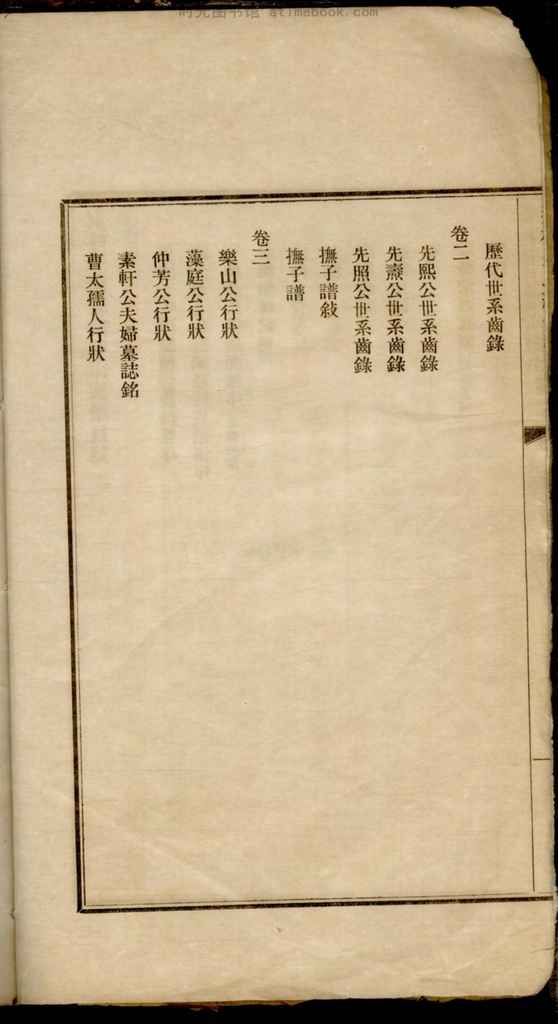 时光图书馆 atimebook.com
歷代世系齒錄
卷二
先熙公世系齒錄
先燾公世系齒錄
先照公世系齒錄
撫子譜敍
撫子譜
卷三
樂山公行狀
藻庭公行狀
仲芳公行狀
素軒公夫婦墓誌銘
曹太孺人行狀